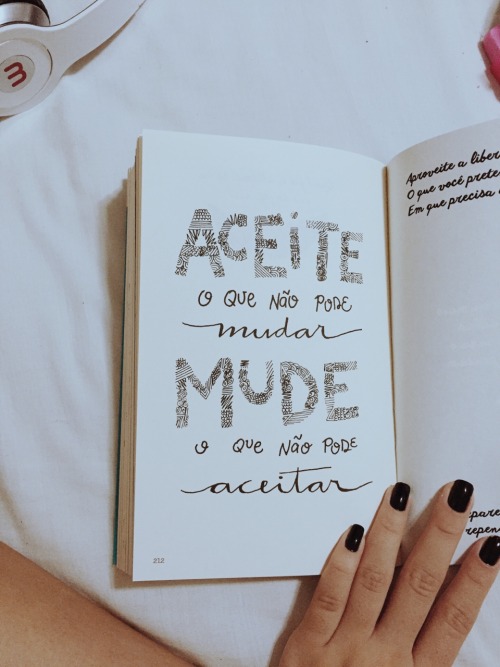 ACEiTE
O QUE NÃO PODE
mudar
MUDE
O QUE NÃO PODE
aceitar
212
Aproveite a
O que você
Em que precisa